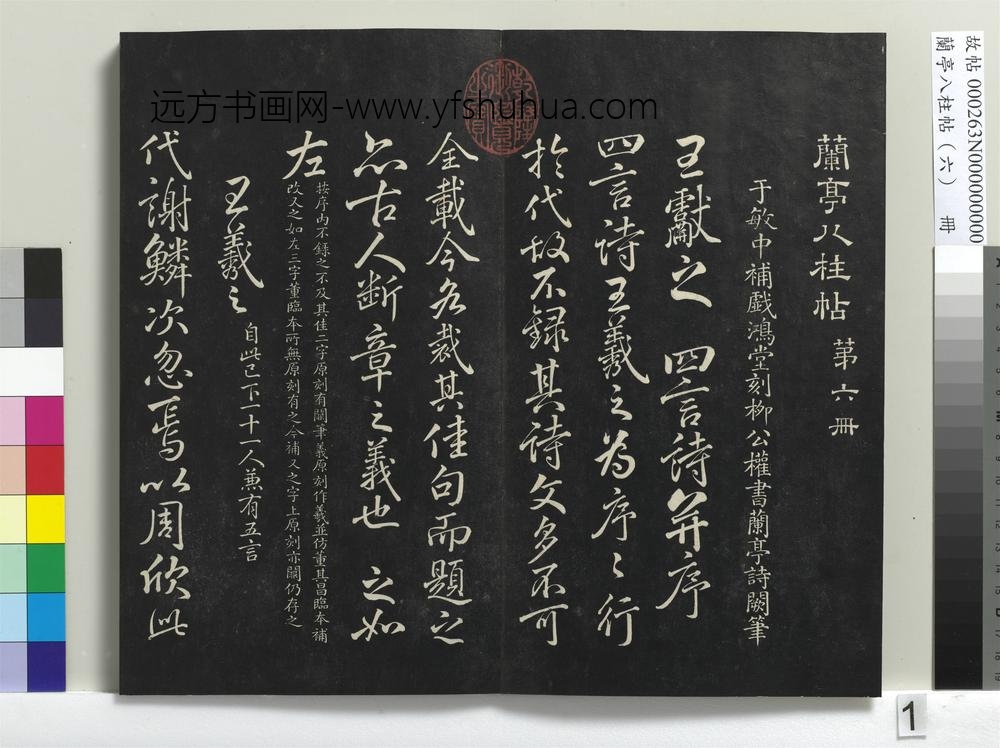 蘭亭八柱帖 第六冊
于敏中補戲鴻堂刻柳公權書蘭亭詩闕筆
王獻之 四言詩并序
四言詩王羲之為序序行
於代故不録其詩文多不可
全載今各裁其佳句而題之
亦古人斷章之義也 之如
左
按序內不錄之不及其佳二字原刻有闕筆義原刻作羲並仿董其昌臨本補
改又之如左三字董臨本所無原刻有之今補又之字上原刻亦闕仍存之
王羲之 自此已下一十一人兼有五言
代謝鱗次忽焉以周欣此
远方书画网-www.yfshuhua.com
故帖 000263N000000000
蘭亭八柱帖（六） 冊
1